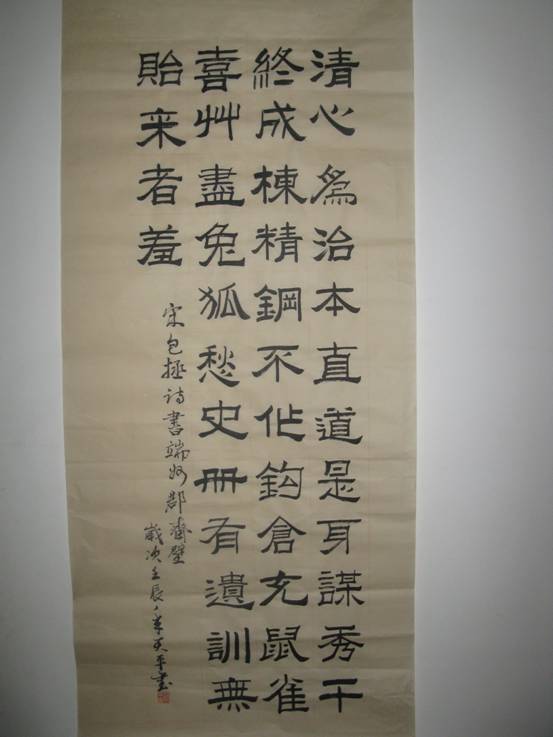 清心為治本直道是身謀秀干
終成棟精鋼不作鈎倉充鼠雀
喜艸盡兔狐愁史冊有遺訓無
貽来者羞
宋包拯诗書端州郡齋壁
歲次壬辰年天平書